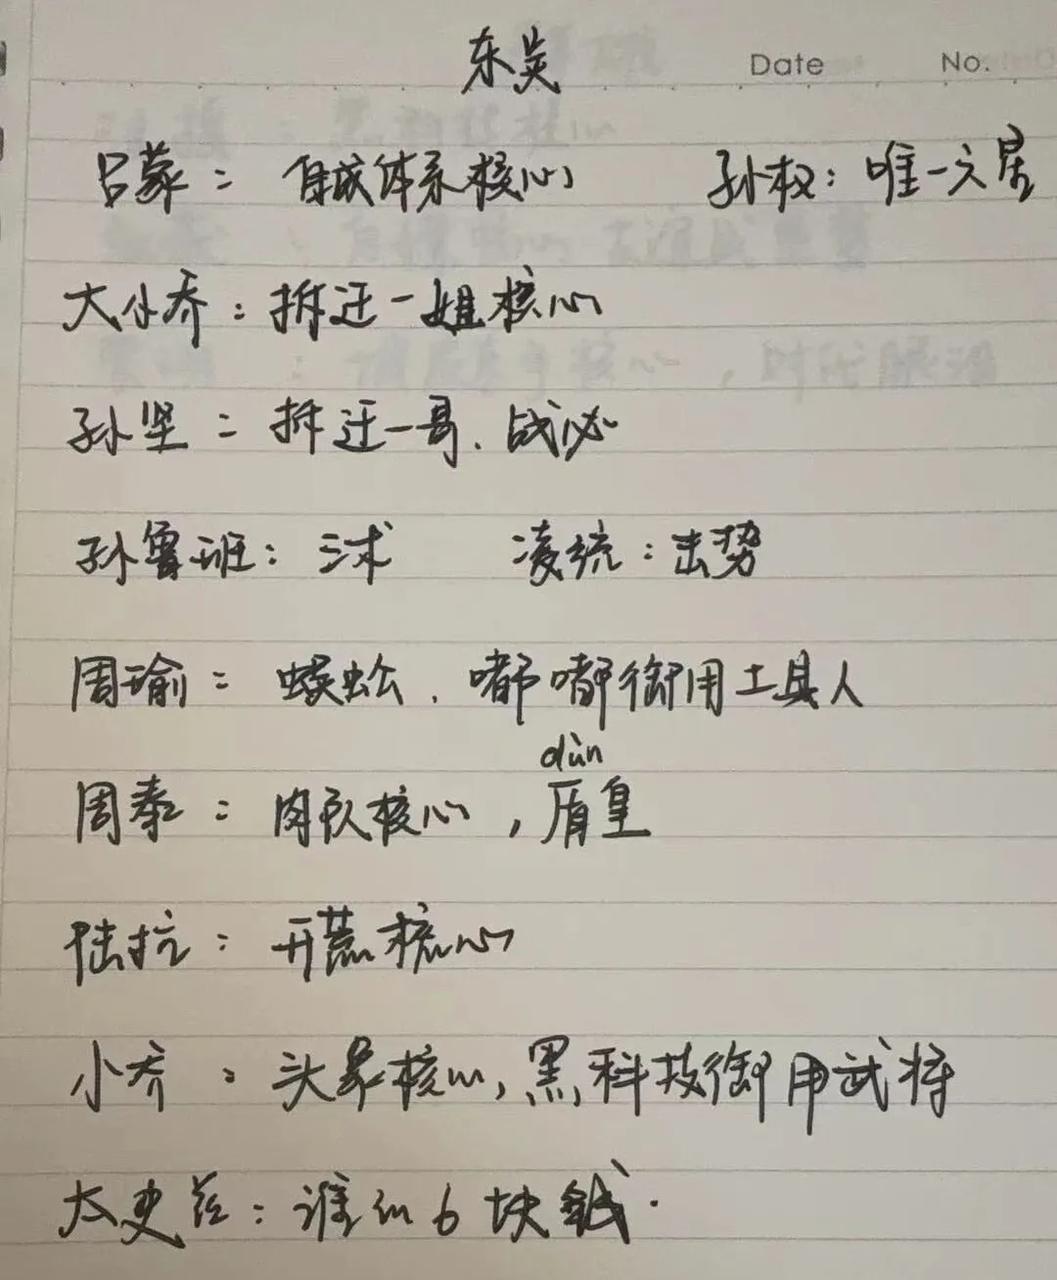 东吴 Date No.
吕蒙：自成体系核心 孙权：唯一六居
大小乔：拆迁一姐核心
孙坚：拆迁一哥、战必
孙鲁班：三术 凌统：击势
周瑜：蜈蚣、嘟嘟御用工具人
dùn
周泰：肉队核心，盾皇
陆抗：开荒核心
小乔：头晕核心，黑科技御用武将
太史慈：谁的6块钱.